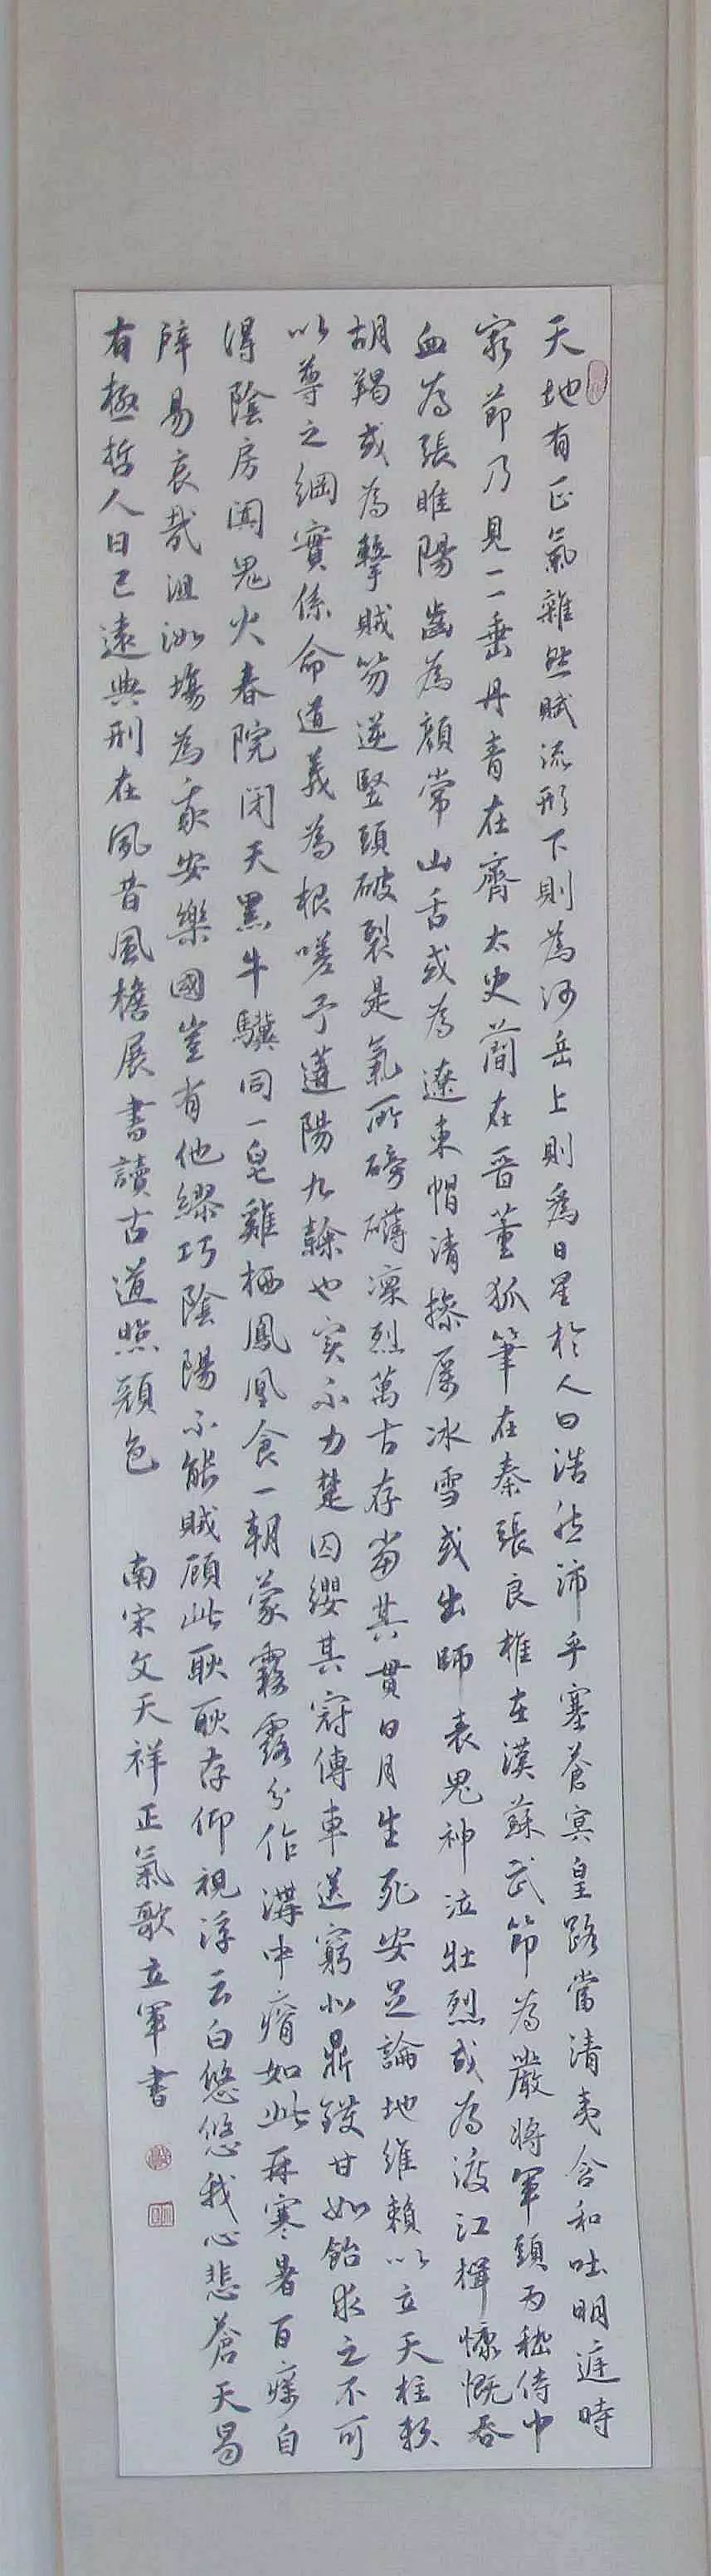 天地有正氣雜然賦流形下則為河岳上則為日星於人曰浩然沛乎塞蒼冥皇路當清夷含和吐明庭時
窮節乃見一一垂丹青在齊太史簡在晉董狐筆在秦張良椎在漢蘇武節為嚴將軍頭為嵇侍中
血為張睢陽齒為顏常山舌或為遼東帽清操厲冰雪或出師表鬼神泣壯烈或為渡江楫慷慨吞
胡羯或為擊賊笏逆豎頭破裂是氣所磅礴凜烈萬古存當其貫日月生死安足論地維賴以立天柱賴
以尊之綱實係命道義為根嗟予遘陽九隸也实不力楚囚纓其冠傳車送窮北鼎鑊甘如飴求之不可
得陰房闐鬼火春院閉天黑牛驥同一皂雞栖鳳凰食一朝蒙霧露分作溝中瘠如此再寒暑百癘自
辟易哀哉沮洳場為我安樂國豈有他繆巧陰陽不能賊顧此耿耿存仰視浮云白悠悠我心悲蒼天曷
有極哲人日已遠典刑在夙昔風檐展書讀古道照顏色 南宋文天祥正氣歌立軍書